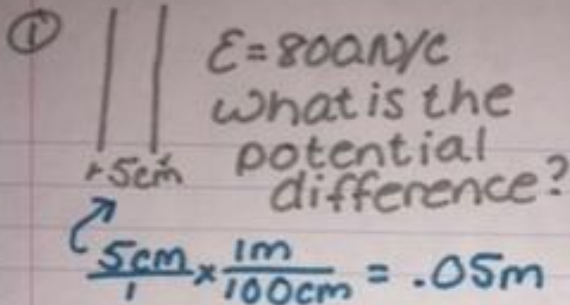 ①
ℰ=800N/C
what is the
potential
difference?
5cm
5cm/1 × 1m/100cm = .05m